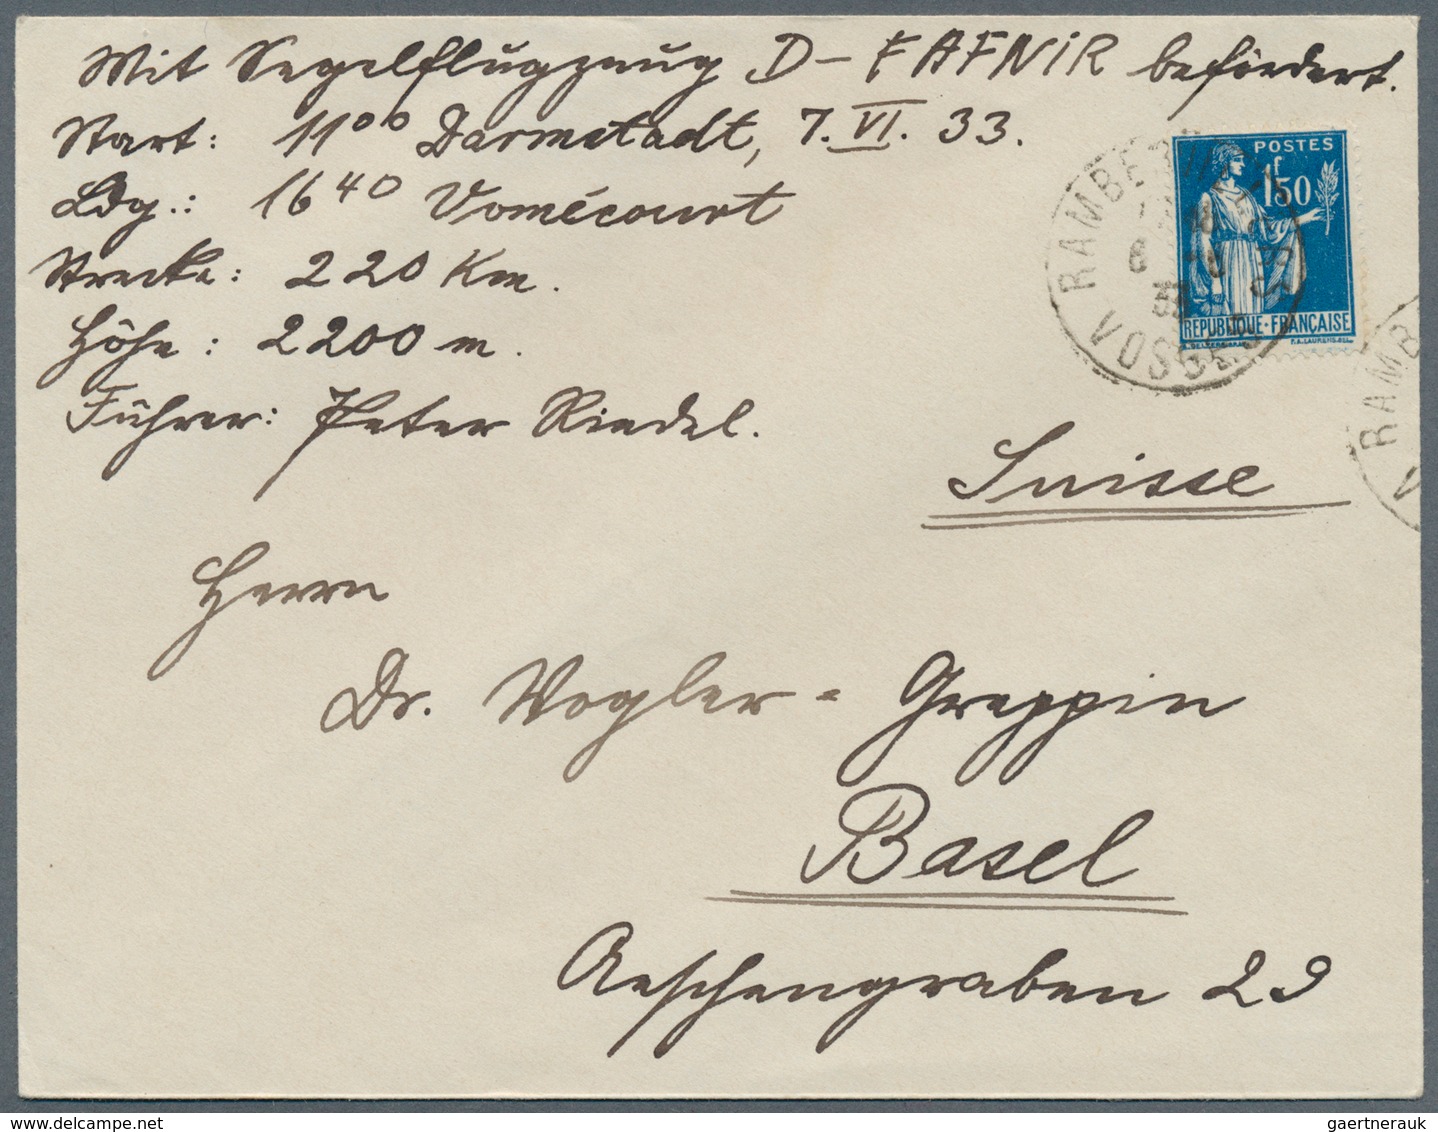 Mit Segelflugzeug D-FAFNIR befördert.
Start: 11⁰⁰ Darmstadt, 7. VI. 33.
Ldg.: 16⁴⁰ Vomécourt
Strecke: 220 Km.
Höhe: 2200 m.
Führer: Peter Riedel.
POSTES
1f50
REPUBLIQUE-FRANÇAISE
P.A. LAURENS DEL.
VOSGES
RAMB
V
Suisse
Herrn
Dr. Vogler = Greppin
Basel
Aeschengraben 29
gaertnerauk